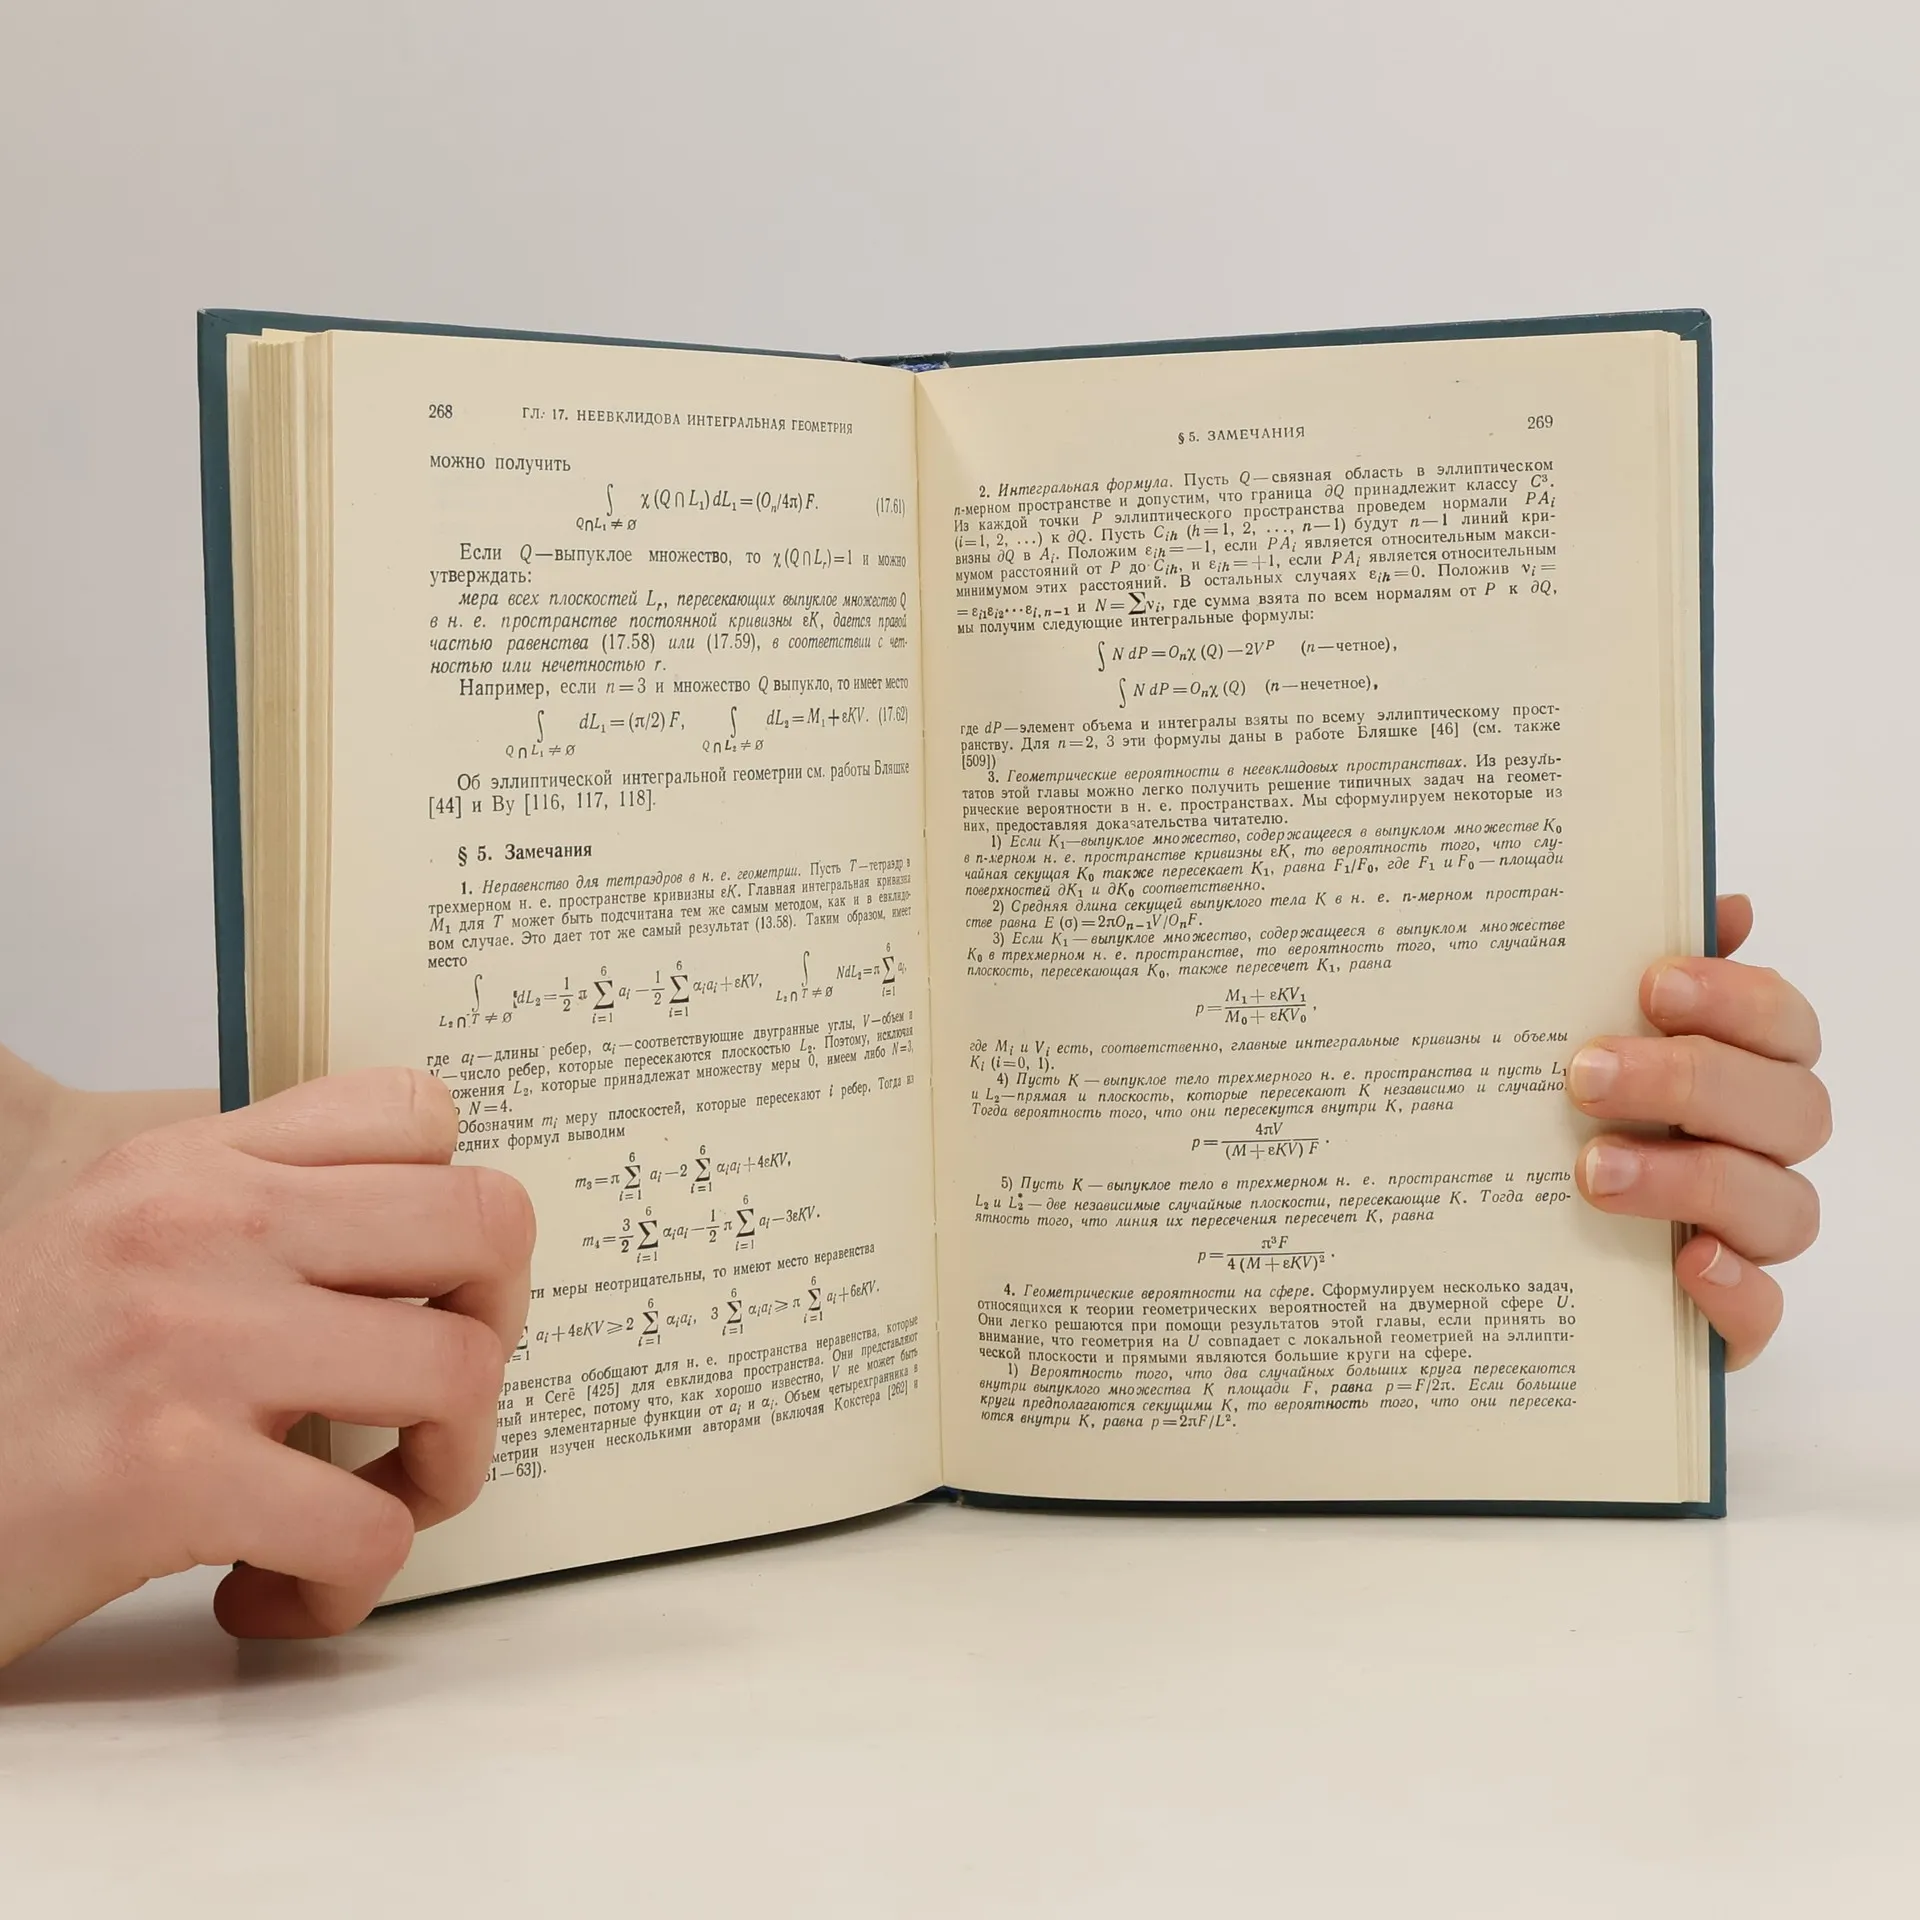 268 ГЛ. 17. НЕЕВКЛИДОВА ИНТЕГРАЛЬНАЯ ГЕОМЕТРИЯ
можно получить
∫ χ (Q ∩ L₁) dL₁ = (Oₙ/4π) F. (17.61)
Q∩L₁ ≠ ∅
Если Q — выпуклое множество, то χ (Q ∩ Lᵣ) = 1 и можно
утверждать:
мера всех плоскостей Lᵣ, пересекающих выпуклое множество Q
в н. е. пространстве постоянной кривизны εK, дается правой
частью равенства (17.58) или (17.59), в соответствии с чет-
ностью или нечетностью r.
Например, если n = 3 и множество Q выпукло, то имеет место
∫ dL₁ = (π/2) F, ∫ dL₂ = M₁ + εKV. (17.62)
Q ∩ L₁ ≠ ∅ Q ∩ L₂ ≠ ∅
Об эллиптической интегральной геометрии см. работы Бляшке
[44] и Ву [116, 117, 118].
§ 5. Замечания
1. Неравенство для тетраэдров в н. е. геометрии. Пусть T — тетраэдр в
трехмерном н. е. пространстве кривизны εK. Главная интегральная кривизна
M₁ для T может быть подсчитана тем же самым методом, как и в евклидо-
вом случае. Это дает тот же самый результат (13.58). Таким образом, имеет
место
∫ dL₂ = 1/2 π ∑ aᵢ − 1/2 ∑ αᵢaᵢ + εKV, ∫ NdL₂ = π ∑ aᵢ,
L₂ ∩ T ≠ ∅ i=1 6 i=1 6 L₂ ∩ T ≠ ∅ i=1 6
где aᵢ — длины ребер, αᵢ — соответствующие двугранные углы, V — объем и
N — число ребер, которые пересекаются плоскостью L₂. Поэтому, исключая
ложения L₂, которые принадлежат множеству меры 0, имеем либо N = 3,
N = 4.
Обозначим mᵢ меру плоскостей, которые пересекают i ребер. Тогда из
едних формул выводим
m₃ = π ∑ aᵢ − 2 ∑ αᵢaᵢ + 4εKV,
i=1 6 i=1 6
m₄ = 3/2 ∑ αᵢaᵢ − 1/2 π ∑ aᵢ − 3εKV.
i=1 6 i=1 6
ти меры неотрицательны, то имеют место неравенства
∑ aᵢ + 4εKV ≥ 2 ∑ αᵢaᵢ, 3 ∑ αᵢaᵢ ≥ π ∑ aᵢ + 6εKV.
i=1 i=1 6 i=1 6 i=1 6
равенства обобщают для н. е. пространства неравенства, которые
иа и Сегё [425] для евклидова пространства. Они представляют
ный интерес, потому что, как хорошо известно, V не может быть
через элементарные функции от aᵢ и αᵢ. Объем четырехгранника в
метрии изучен несколькими авторами (включая Кокстера [262] и
51—63]).
§ 5. ЗАМЕЧАНИЯ 269
2. Интегральная формула. Пусть Q — связная область в эллиптическом
n-мерном пространстве и допустим, что граница ∂Q принадлежит классу C³.
Из каждой точки P эллиптического пространства проведем нормали PAᵢ
(i = 1, 2, ...) к ∂Q. Пусть Cᵢₕ (h = 1, 2, ..., n — 1) будут n — 1 линий кри-
визны ∂Q в Aᵢ. Положим εᵢₕ = — 1, если PAᵢ является относительным макси-
мумом расстояний от P до Cᵢₕ, и εᵢₕ = + 1, если PAᵢ является относительным
минимумом этих расстояний. В остальных случаях εᵢₕ = 0. Положив νᵢ =
= εᵢ₁εᵢ₂...εᵢ,ₙ₋₁ и N = ∑νᵢ, где сумма взята по всем нормалям от P к ∂Q,
мы получим следующие интегральные формулы:
∫ N dP = Oₙχ (Q) — 2Vᴾ (n — четное),
∫ N dP = Oₙχ (Q) (n — нечетное),
где dP — элемент объема и интегралы взяты по всему эллиптическому прост-
ранству. Для n = 2, 3 эти формулы даны в работе Бляшке [46] (см. также
[509])
3. Геометрические вероятности в неевклидовых пространствах. Из резуль-
татов этой главы можно легко получить решение типичных задач на геомет-
рические вероятности в н. е. пространствах. Мы сформулируем некоторые из
них, предоставляя доказательства читателю.
1) Если K₁ — выпуклое множество, содержащееся в выпуклом множестве K₀
в n-мерном н. е. пространстве кривизны εK, то вероятность того, что слу-
чайная секущая K₀ также пересекает K₁, равна F₁/F₀, где F₁ и F₀ — площади
поверхностей ∂K₁ и ∂K₀ соответственно.
2) Средняя длина секущей выпуклого тела K в н. е. n-мерном простран-
стве равна E (σ) = 2πOₙ₋₁V/OₙF.
3) Если K₁ — выпуклое множество, содержащееся в выпуклом множестве
K₀ в трехмерном н. е. пространстве, то вероятность того, что случайная
плоскость, пересекающая K₀, также пересечет K₁, равна
p = (M₁ + εKV₁)/(M₀ + εKV₀),
где Mᵢ и Vᵢ есть, соответственно, главные интегральные кривизны и объемы
Kᵢ (i = 0, 1).
4) Пусть K — выпуклое тело трехмерного н. е. пространства и пусть L₁
и L₂ — прямая и плоскость, которые пересекают K независимо и случайно.
Тогда вероятность того, что они пересекутся внутри K, равна
p = 4πV/((M + εKV) F).
5) Пусть K — выпуклое тело в трехмерном н. е. пространстве и пусть
L₂ и L₂* — две независимые случайные плоскости, пересекающие K. Тогда веро-
ятность того, что линия их пересечения пересечет K, равна
p = π³F/(4 (M + εKV)²).
4. Геометрические вероятности на сфере. Сформулируем несколько задач,
относящихся к теории геометрических вероятностей на двумерной сфере U.
Они легко решаются при помощи результатов этой главы, если принять во
внимание, что геометрия на U совпадает с локальной геометрией на эллипти-
ческой плоскости и прямыми являются большие круги на сфере.
1) Вероятность того, что два случайных больших круга пересекаются
внутри выпуклого множества K площади F, равна p = F/2π. Если большие
круги предполагаются секущими K, то вероятность того, что они пересека-
ются внутри K, равна p = 2πF/L².